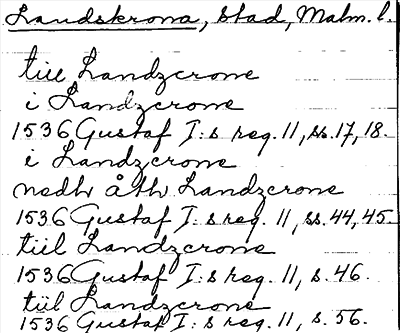 Landskrona, stad, Malm. l.
till Landzcrone
i Landzcrone
1536 Gustaf I:s reg. 11, ss. 17, 18.
i Landzcrone
nedh åth Landzcrone
1536 Gustaf I:s reg. 11, ss. 44, 45
tiil Landzcrone
1536 Gustaf I:s reg. 11, s. 46.
tiil Landzcrone
1536 Gustaf I:s reg. 11, s. 56.